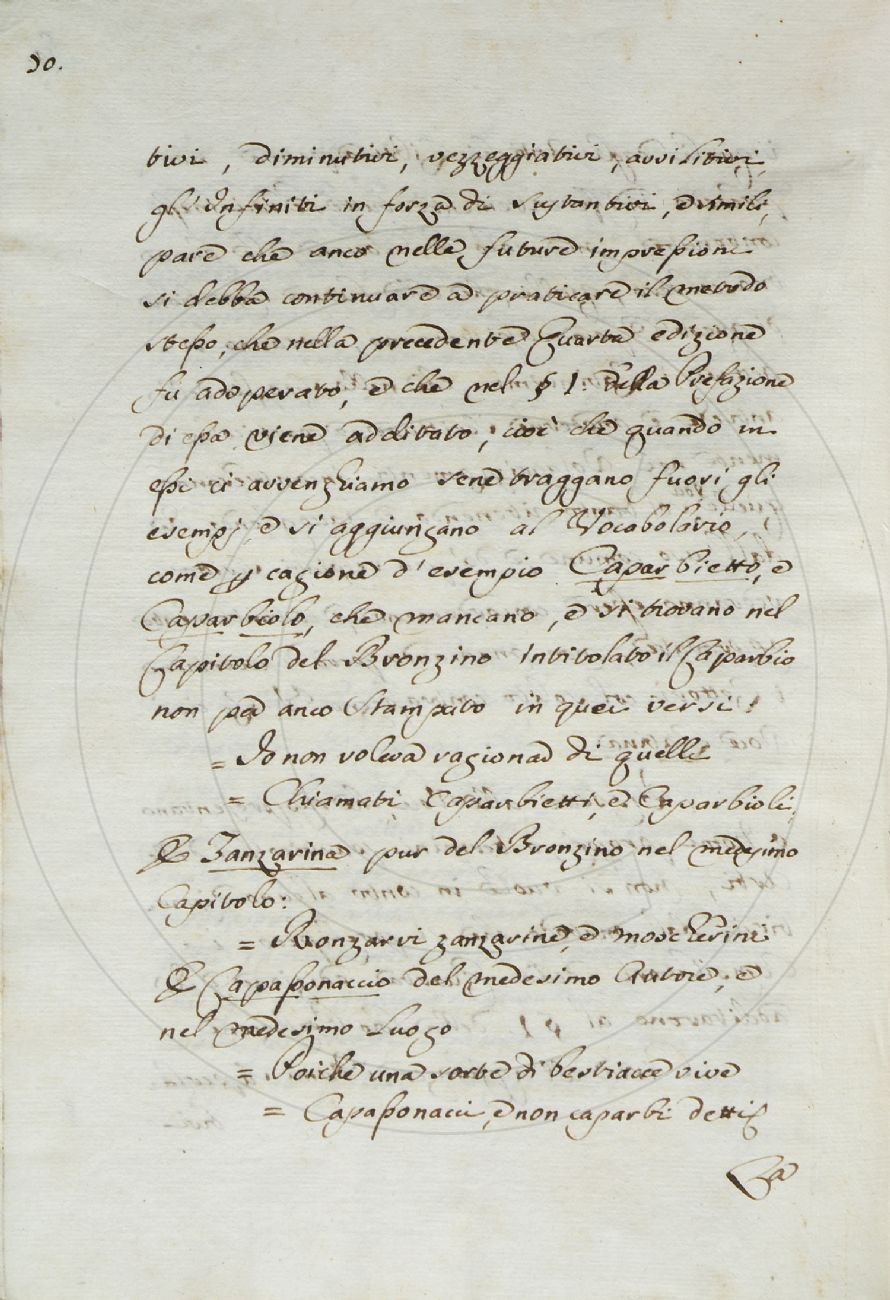 30.
tivi, diminutivi, vezzeggiativi, avvilitivi,
gl'Infiniti in forza di sustantivi, e simili,
pare che anco nelle future impressioni
si debba continuare a praticare il metodo
stesso, che nella precedente Quarta edizione
fu adoperato, e che nel § 1. della Prefazione
di essa viene additato, cioè che quando in
essi ci avvenghiamo sene traggano fuori gli
esempj e si aggiungano al Vocabolario,
come p cagione d'esempio Caparbietto, e
Caparbiolo, che mancano, e si trovano nel
Capitolo del Bronzino intitolato il Caparbio
non per anco Stampato in quei versi:
= Io non voleva ragionar di quelli
= Chiamati Caparbietti, e Caparbioli,
E Zanzarina pur del Bronzino nel medesimo
Capitolo:
= Ronzarvi zanzarine, e moscherini
E Capassonaccio del medesimo Autore, e
nel medesimo Luogo
= Poiche una sorte di bestiacce vive
= Capassonacci, e non caparbi detti
La